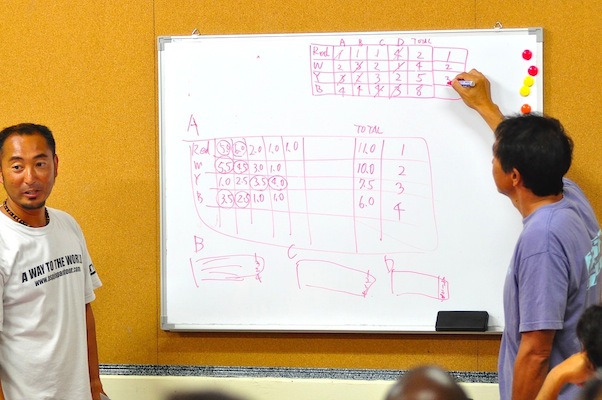 A B C D TOTAL
Red 1 1 1 4 2 1
W 2 3 2 1 4 2
Y 3 2 3 2 5 3
B 4 4 4 3 8
A
TOTAL
Red 5.0 6.0 2.0 1.0 1.0 11.0 1
W 5.5 4.5 3.0 1.0 10.0 2
Y 1.0 2.5 3.5 4.0 7.5 3
B 3.5 2.5 1.0 1.0 6.0 4
B C D
A WAY TO THE WORLD